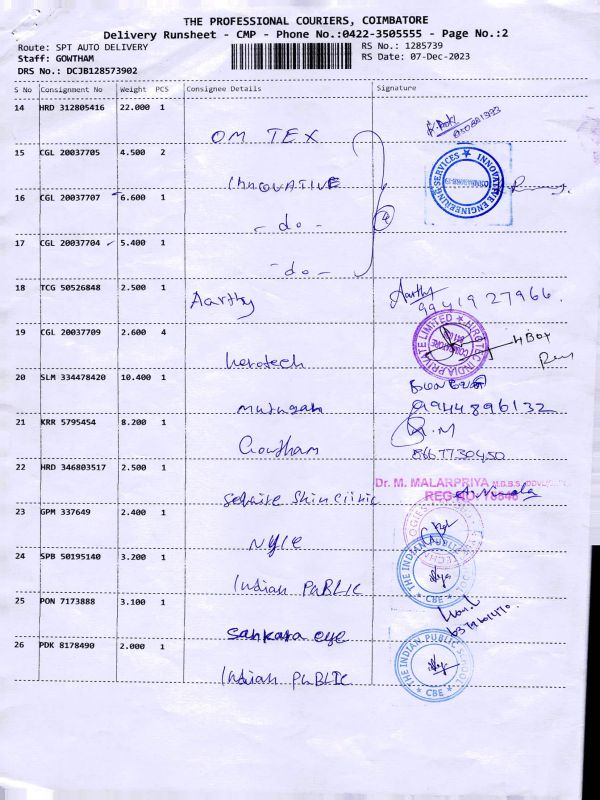 THE PROFESSIONAL COURIERS, COIMBATORE
Delivery Runsheet - CMP - Phone No.:0422-3505555 - Page No.:2
Route: SPT AUTO DELIVERY RS No.: 1285739
Staff: GOWTHAM RS Date: 07-Dec-2023
DRS No.: DCJB128573902
S No Consignment No Weight PCS Consignee Details Signature
14 HRD 312805416 22.000 1
OM TEX
15 CGL 20037705 4.500 2
INNOVATIVE
INNOVATIVE ENGINEERING SERVICES
16 CGL 20037707 6.600 1
- do -
17 CGL 20037704 5.400 1
- do -
18 TCG 50526848 2.500 1
Aarthy Aarthy
9941927966.
19 CGL 20037709 2.600 4
INDIA PRIVATE LIMITED
4 BOX
20 SLM 334478420 10.400 1
murugan 9944896132
21 KRR 5795454 8.200 1
Gowtham 8667730450
22 HRD 346803517 2.500 1
Dr. M. MALARPRIYA
Skin Clinic
23 GPM 337649 2.400 1
24 SPB 50195140 3.200 1
Indian PUBLIC
THE INDIAN PUBLIC
CBE
25 PON 7173888 3.100 1
Sankara eye
26 PDK 8178490 2.000 1
Indian PUBLIC
THE INDIAN PUBLIC SCHOOL
CBE